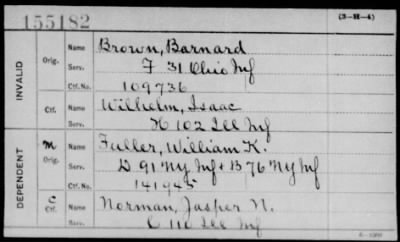 155182 (3-H-4)
INVALID
Orig. Name Brown, Barnard
Serv. F 31 Ohio Inf
Ctf. No. 109736
Ctf. Name Wilhelm, Isaac
Serv. H 102 Ill Inf
DEPENDENT
M Orig. Name Fuller, William K.
Serv. D 91 NY Inf + B 76 NY Inf
Ctf. No. 141945
C Ctf. Name Norman, Jasper N.
Serv. C 110 Ill Inf